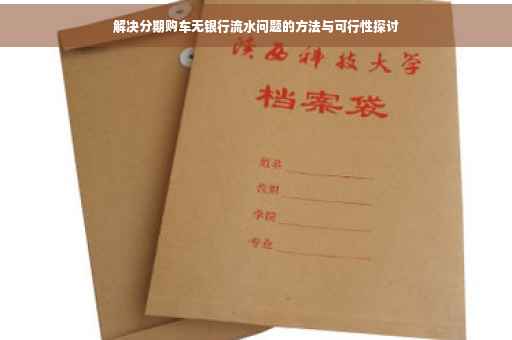 解决分期购车无银行流水问题的方法与可行性探讨
陕西科技大学
档案袋
姓名
学院
专业